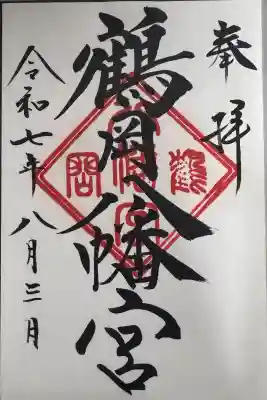 奉拝
鶴岡八幡宮
令和七年八月三日